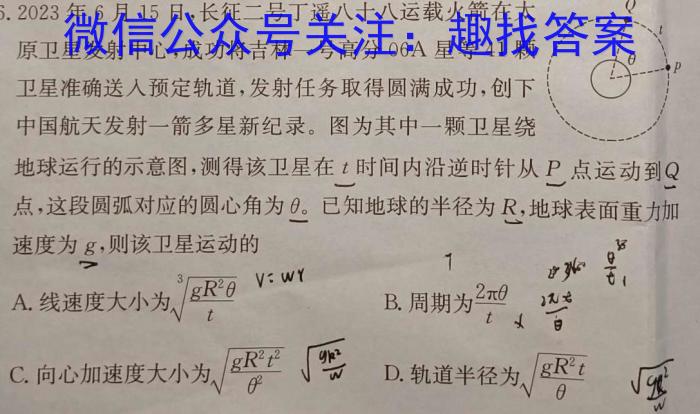 6. 2023 年 6 月 15 日,长征二号丁遥八十八运载火箭在太
微信公众号关注: 趣找答案
原卫星发射中心,成功将吉林一号高分 06A 星等 41 颗
卫星准确送入预定轨道,发射任务取得圆满成功,创下
中国航天发射一箭多星新纪录。图为其中一颗卫星绕
地球运行的示意图,测得该卫星在 t 时间内沿逆时针从 P 点运动到Q
点,这段圆弧对应的圆心角为 θ。已知地球的半径为 R,地球表面重力加
速度为 g,则该卫星运动的
A. 线速度大小为 ∛(gR²θ/t) V=wr
B. 周期为 2πθ/t x 2πt/θ
C. 向心加速度大小为 √(gR²t²/θ²) √(gR²/w)
D. 轨道半径为 √(gR²t/θ) √(gR²/w)
Q
t
θ
P
T
θ/t